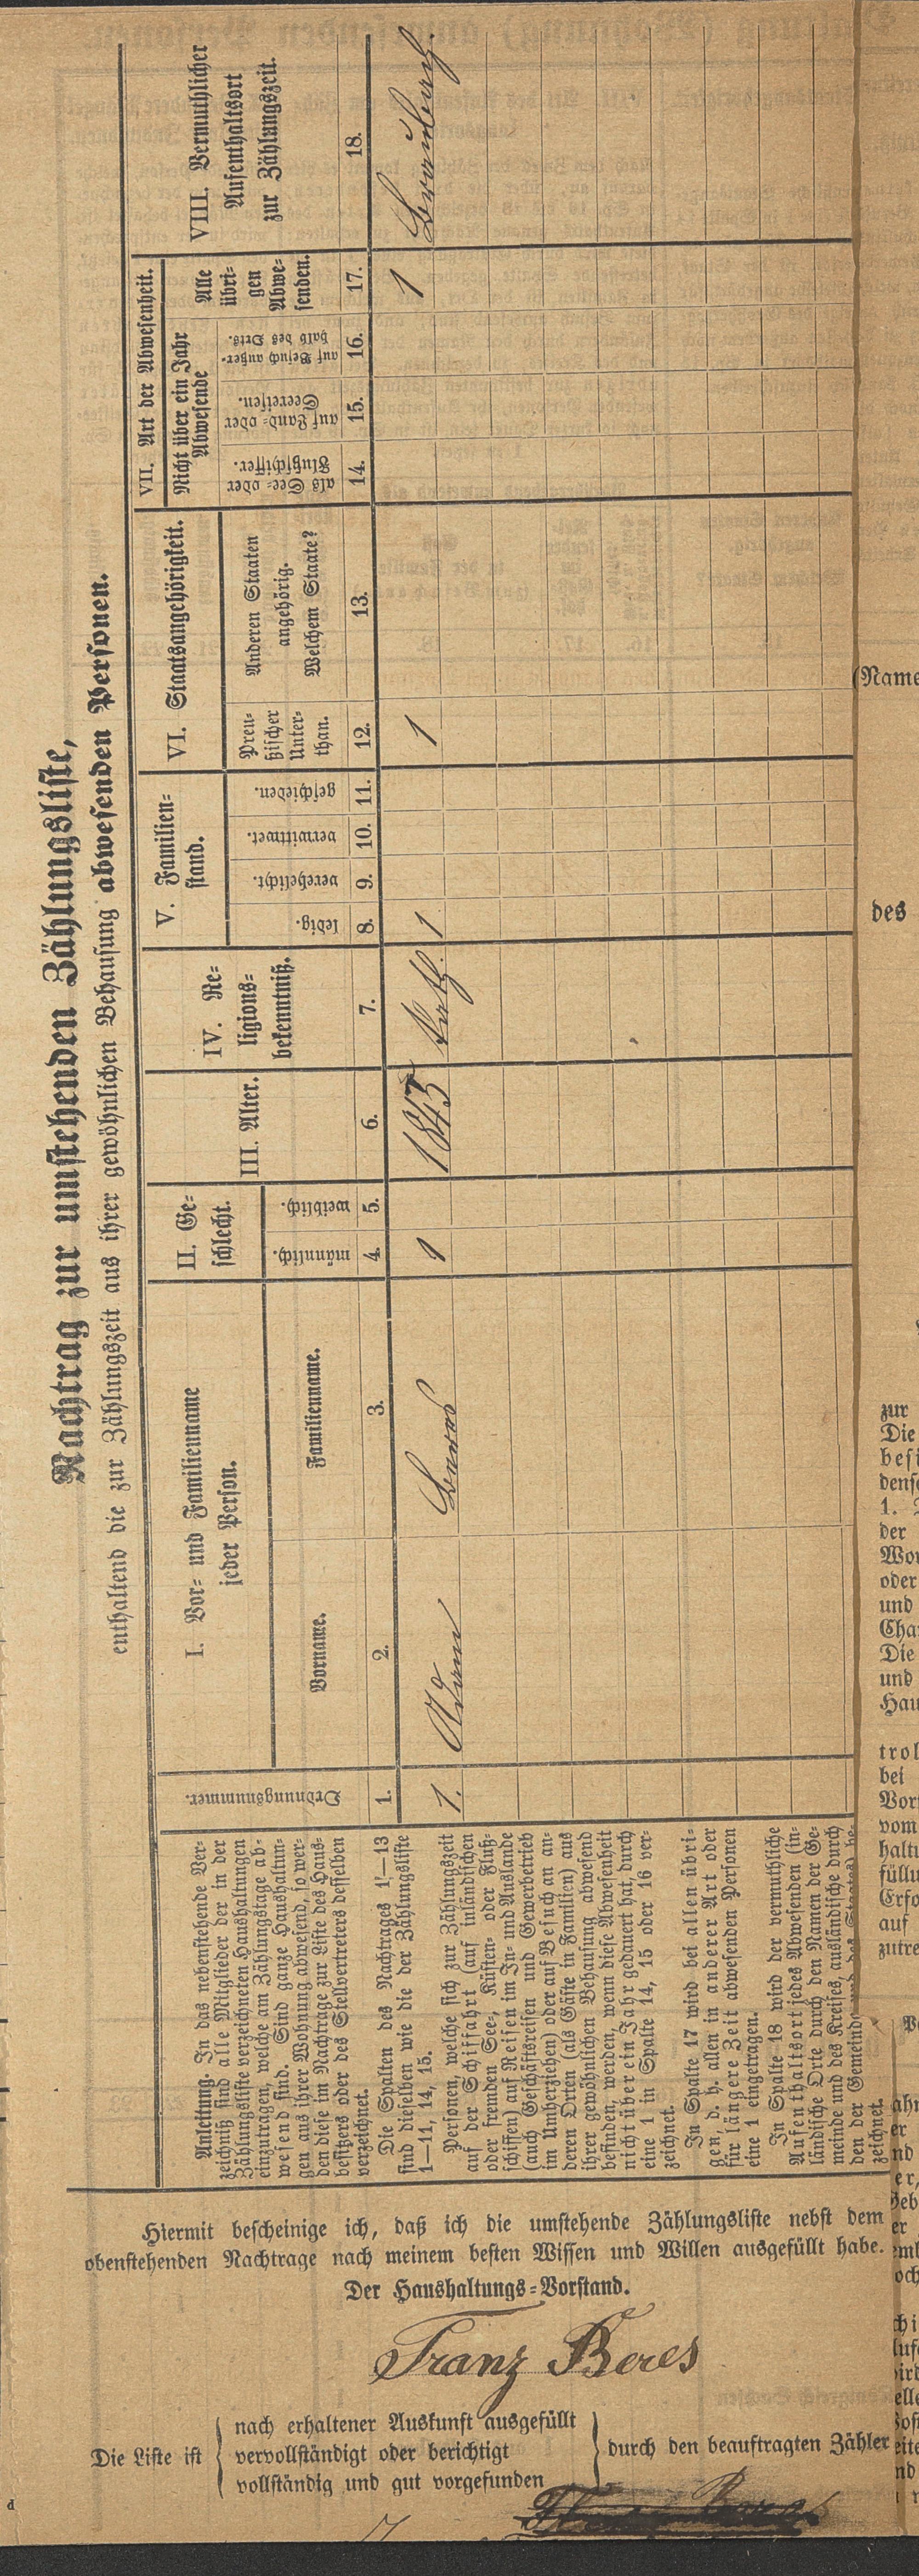 Nachtrag zur umstehenden Zählungsliste,
enthaltend die zur Zählungszeit aus ihrer gewöhnlichen Behausung abwesenden Personen.
Anleitung. In das nebenstehende Ver-
zeichniß sind alle Mitglieder der in der
Zählungsliste verzeichneten Haushaltungen
einzutragen, welche am Zählungstage ab-
wesend sind. Sind ganze Haushaltun-
gen aus ihrer Wohnung abwesend, so wer-
den diese im Nachtrage zur Liste des Haus-
besitzers oder des Stellvertreters desselben
verzeichnet.
Die Spalten des Nachtrages 1–13
sind dieselben wie die der Zählungsliste
1–11, 14, 15.
Personen, welche sich zur Zählungszeit
auf der Schiffahrt (auf inländischen
oder fremden See-, Küsten- oder Fluß-
schiffen) auf Reisen im In- und Auslande
(auch Geschäftsreisen und Gewerbetrieb
im Umherziehen) oder auf Besuch an an-
deren Orten (als Gäste in Familien) aus
ihrer gewöhnlichen Behausung abwesend
befinden, werden, wenn diese Abwesenheit
nicht über ein Jahr gedauert hat, durch
eine 1 in Spalte 14, 15 oder 16 ver-
zeichnet.
In Spalte 17 wird bei allen übri-
gen, d. h. allen in anderer Art oder
für längere Zeit abwesenden Personen
eine 1 eingetragen.
In Spalte 18 wird der vermuthliche
Aufenthaltsort jedes Abwesenden (in-
ländische Orte durch den Namen der Ge-
meinde und des Kreises, ausländische durch
den der Gemeinde und des Staates) be-
zeichnet.
Ordnungsnummer.
I. Vor- und Familienname
jeder Person.
Vorname.
Familienname.
II. Ge-
schlecht.
männlich.
weiblich.
III. Alter.
IV. Re-
ligions-
bekenntniß.
V. Familien-
stand.
ledig.
verehelicht.
verwittwet.
geschieden.
VI. Staatsangehörigkeit.
Preu-
ßischer
Unter-
than.
Anderen Staaten
angehörig.
Welchem Staate?
VII. Art der Abwesenheit.
Nicht über ein Jahr
Abwesende
als See- oder
Flußschiffer.
auf Land- oder
Seereisen.
auf Besuch außer-
halb des Orts.
Alle
übri-
gen
Abwe-
senden.
VIII. Vermuthlicher
Aufenthaltsort
zur Zählungszeit.
1. 2. 3. 4. 5. 6. 7. 8. 9. 10. 11. 12. 13. 14. 15. 16. 17. 18.
1. Adam 1 1845 kath. 1 1 1
Hiermit bescheinige ich, daß ich die umstehende Zählungsliste nebst dem
obenstehenden Nachtrage nach meinem besten Wissen und Willen ausgefüllt habe.
Der Haushaltungs-Vorstand.
Franz Beres
Die Liste ist
nach erhaltener Auskunft ausgefüllt
vervollständigt oder berichtigt
vollständig und gut vorgefunden
durch den beauftragten Zähler
(Name
des
zur
Die
besi
dens
1.
der
oder
und
Die
und
Hau
bei
vom
auf